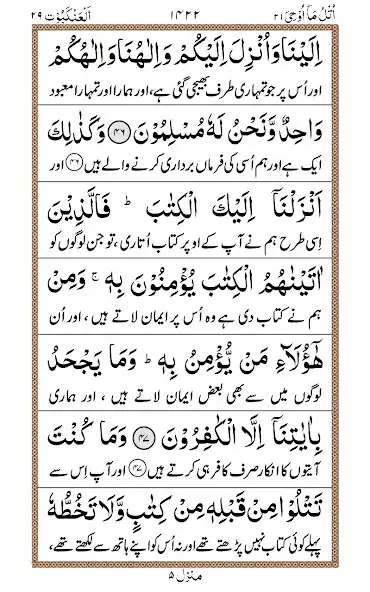 اُتْلُ مَآ اُوْحِیَ ۲۱ ۱۴۲۲ اَلْعَنْكَبُوْت ۲۹
اِلَیْنَا وَاُنْزِلَ اِلَیْكُمْ وَاِلٰهُنَا وَاِلٰهُكُمْ
اور اُس پر جو تمہاری طرف بھیجی گئی ہے، اور ہمارا اور تمہارا معبود
وَاحِدٌ وَّنَحْنُ لَهٗ مُسْلِمُوْنَ ۴۶ وَكَذٰلِكَ
ایک ہے اور ہم اُسی کی فرماں برداری کرنے والے ہیں ۴۶ اور
اَنْزَلْنَآ اِلَیْكَ الْكِتٰبَ ؕ فَالَّذِیْنَ
اِسی طرح ہم نے آپ کے اوپر کتاب اُتاری، تو جن لوگوں کو
اٰتَیْنٰهُمُ الْكِتٰبَ یُؤْمِنُوْنَ بِهٖ ۚ وَمِنْ
ہم نے کتاب دی ہے وہ اُس پر ایمان لاتے ہیں، اور اُن
هٰۤؤُلَآءِ مَنْ یُّؤْمِنُ بِهٖ ؕ وَمَا یَجْحَدُ
لوگوں میں سے بھی بعض ایمان لاتے ہیں، اور ہماری
بِاٰیٰتِنَآ اِلَّا الْكٰفِرُوْنَ ۴۷ وَمَا كُنْتَ
آیتوں کا انکار صرف کافر ہی کرتے ہیں ۴۷ اور آپ اِس سے
تَتْلُوْا مِنْ قَبْلِهٖ مِنْ كِتٰبٍ وَّلَا تَخُطُّهٗ
پہلے کوئی کتاب نہیں پڑھتے تھے اور نہ اُس کو اپنے ہاتھ سے لکھتے تھے،
منزل ۵